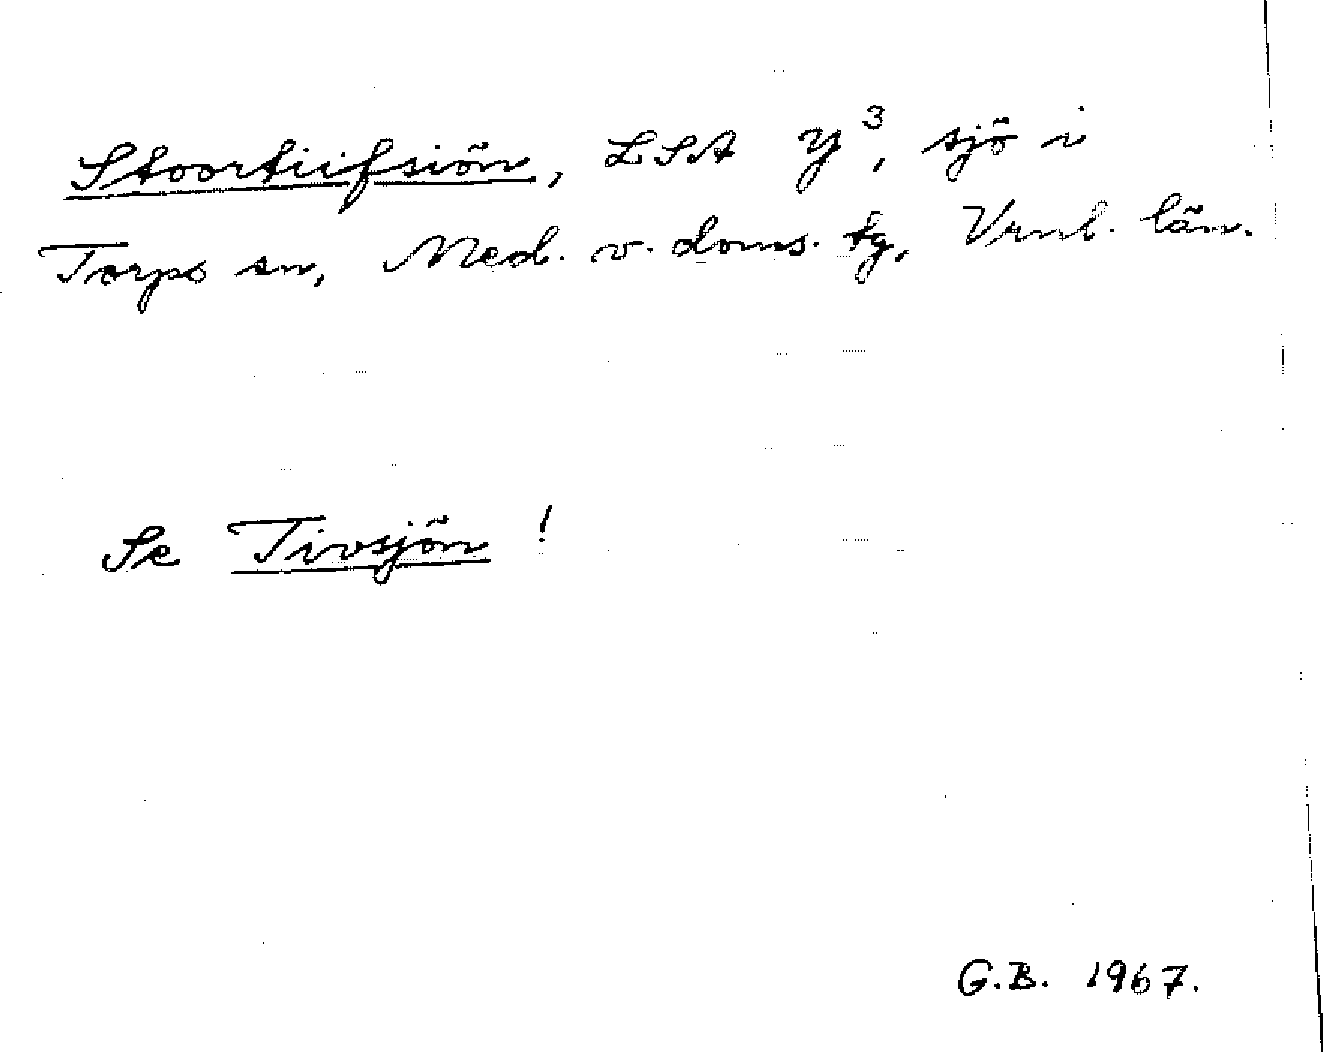 Stoortiifsiön, LSA Y³, sjö i
Torps sn, Med. v. doms. tg, Vrnl. län.
Se Tivsjön !
G.B. 1967.